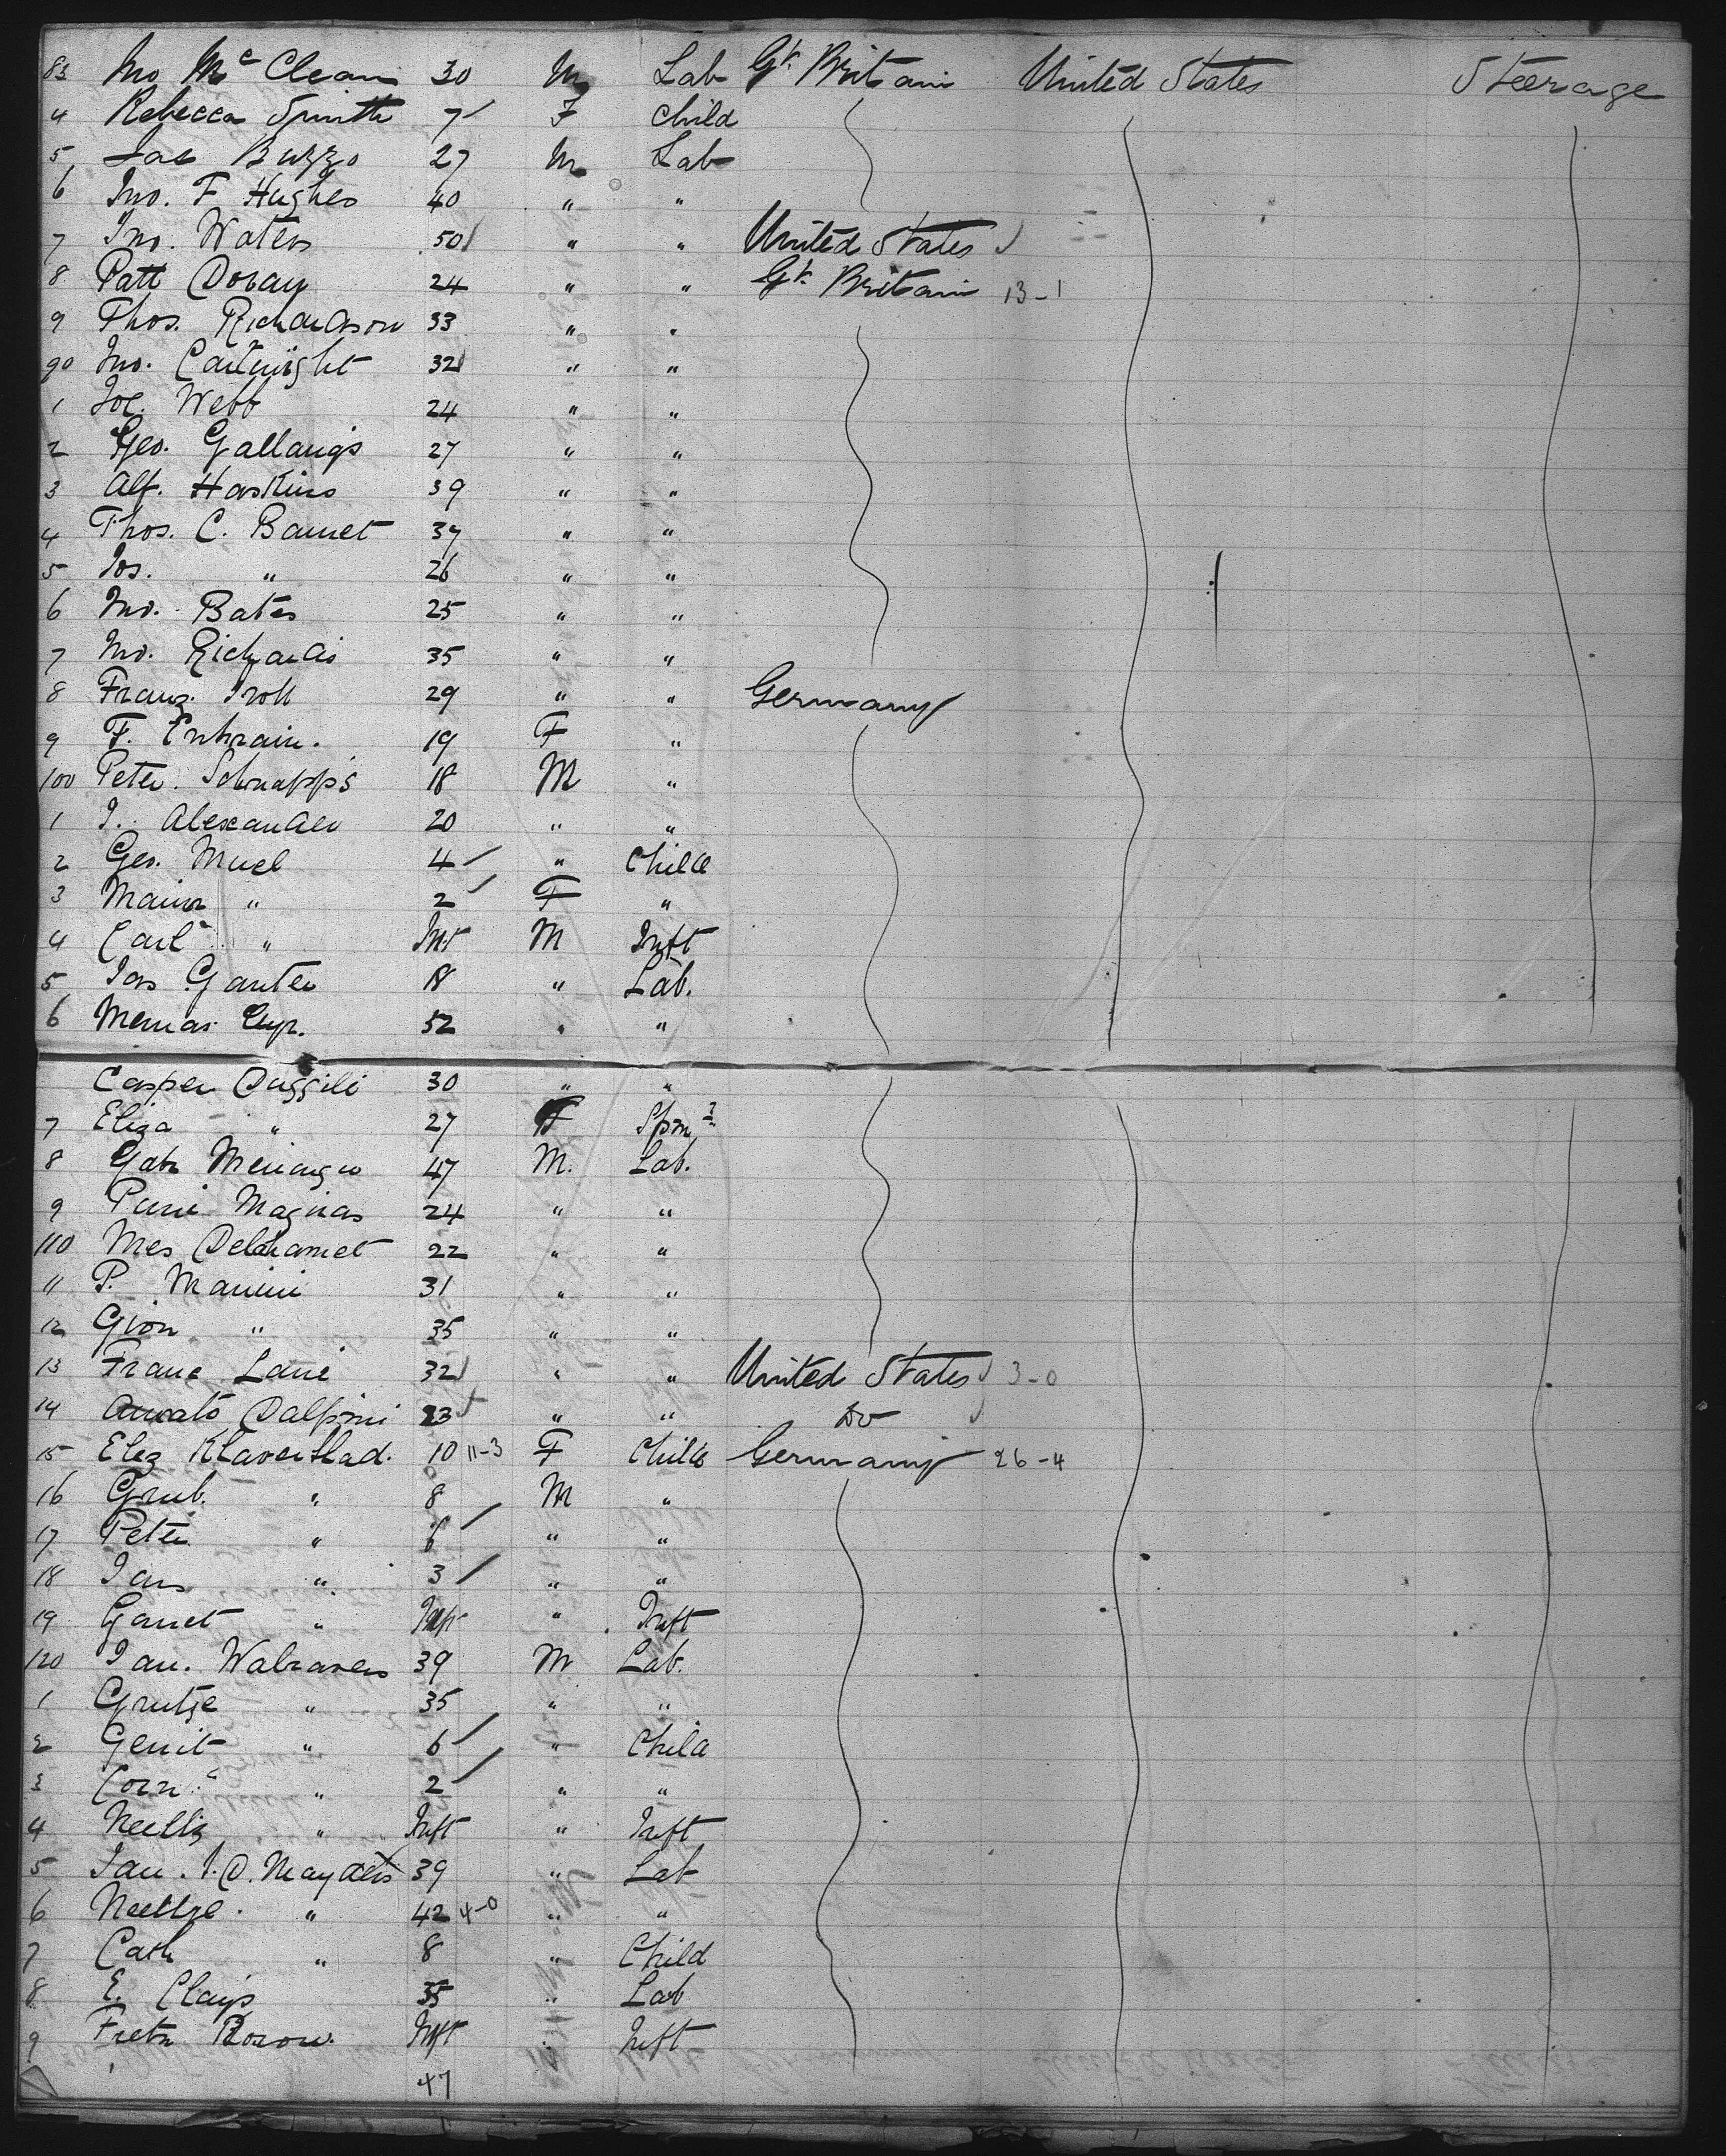 83 Jno McClean 30 M Lab Gt. Britain United States Steerage
4 Rebecca Smith 7 F Child
5 Jas Buzzo 27 M Lab
6 Jno. F Hughes 40 " "
7 Jno. Waters 50 " " United States
8 Patt Doran 24 " " Gt. Britain 13-1
9 Thos. Richardson 33 " "
90 Jno. Cartwright 32 " "
1 Joe. Webb 24 " "
2 Geo. 27 " "
3 Alf. Hoskins 39 " "
4 Thos. C. Barnet 37 " "
5 Jos. " 26 " "
6 Jno. Bates 25 " "
7 Jno. Richards 35 " "
8 Franz. Troll 29 " " Germany
9 F. 19 F "
100 Peter. Schnapps 18 M "
1 J. Alexander 20 " "
2 Geo. Muel 4 " Child
3 " 2 F "
4 Carl " Inft M Inft
5 Jos Ganter 18 " Lab.
6 52 " "
Casper 30 " "
7 Eliza " 27 F Spnr
8 Gab 47 M. Lab.
9 Magnas 24 " "
110 22 " "
11 P. Manini 31 " "
12 Gion " 35 " "
13 Franc Lane 32 " " United States 3-0
14 Dalponi 23 " " Do
15 Eliz 10 11-3 F Child Germany 26-4
16 Grub. " 8 M "
17 Peter " 6 " "
18 Jans " 3 " "
19 Garret " Inft " Inft
120 Jan. Walravens 39 M Lab.
1 " 35 " "
2 Gerrit " 6 " Child
3 Corn. " 2 " "
4 " Inft " Inft
5 Jan. 39 " Lab
6 " 42 4-0 " "
7 Cath " 8 " Child
8 E. Clays 35 " Lab
9 Inft " Inft
47